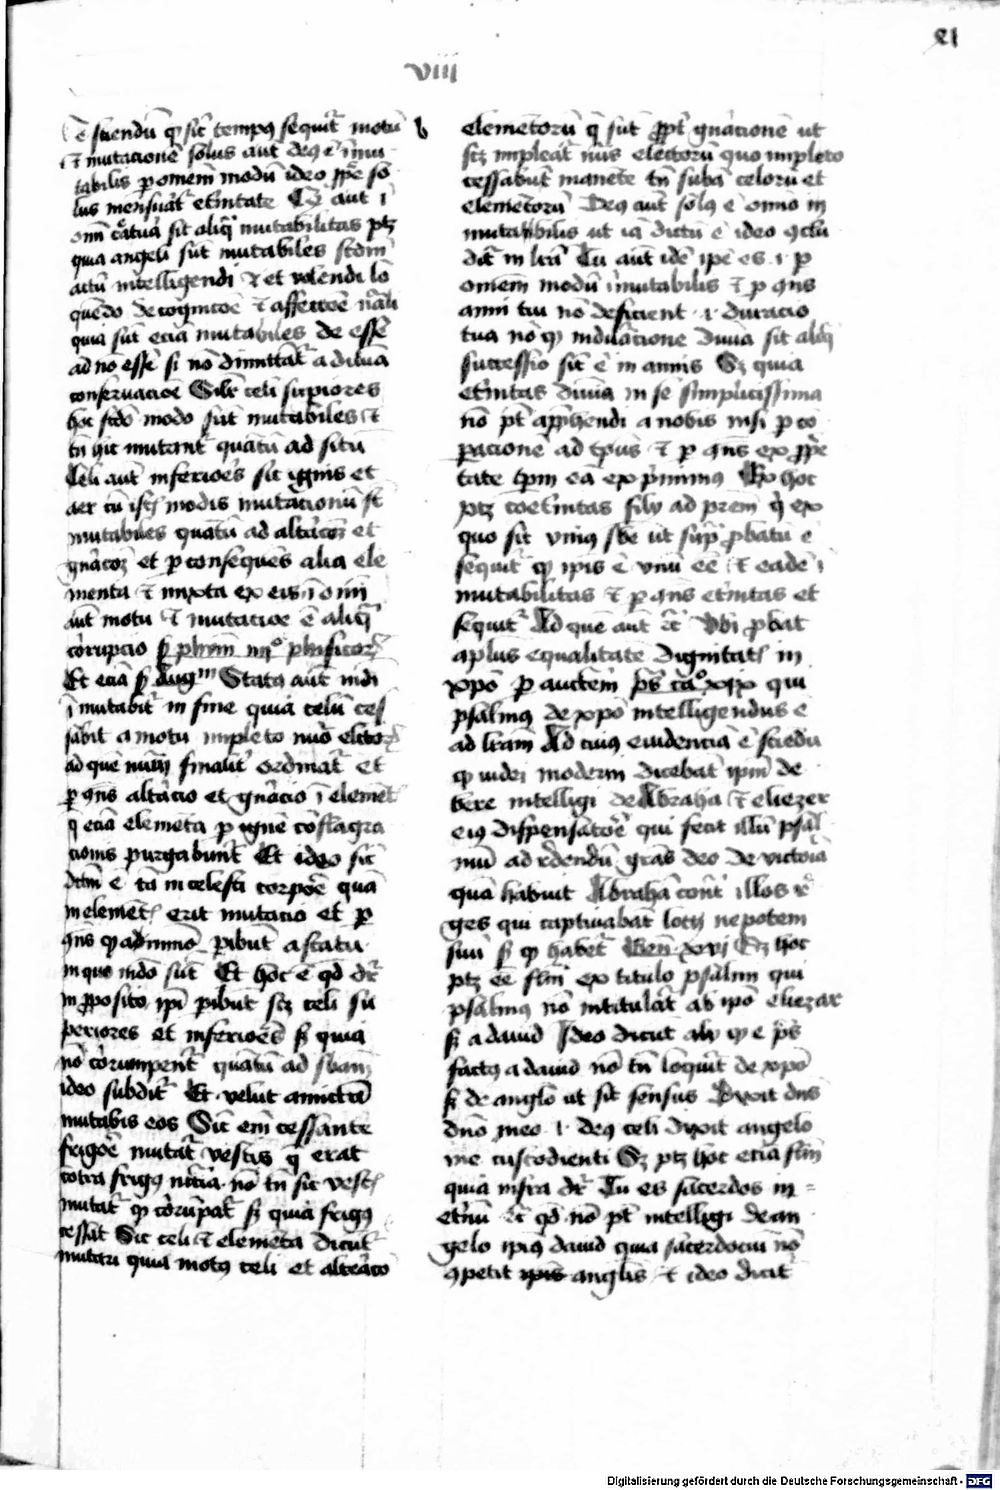 viii
21
ē sciendū qͥ sic̄ tempꝫ sequit᷑ motū
⁊ mutacionē solus aut deꝫ ē īmu
tabilis ꝑ omnem modū ideo ip̄e so
lus mensurat᷑ et̄nitate Cū aut ī
omī c̄atura sit aliq̄ mutabilitas ptꝫ
quia angeli sūt mutabiles scdm̄
actū intelligendi ⁊ et volendi lo
quēdo de cognic̄oē ⁊ affecc̄oē nāli
quia sūt eciā mutabiles de esse
ad nō esse si nō dimittāt᷑ a diuīa
conseruacioē Sil̄r celi suꝑiores
hoc scdō modo sūt mutabiles ⁊
tn̄ hic mutant᷑ quātū ad sitū
Celi aut̄ inferiores sic̄ ignis et
aer cū isti᷒ modis mutacionū st̄
mutabiles quātū ad alt̄acōꝫ et
gn̄acōꝫ et ꝑ conseques alia ele
menta ⁊ mixta ex eis ī omī
aūt motu ⁊ mutacioē ē aliq̄
corrupcio ẜ ph̄m̄ iiiiᵒ phisicoꝝ
Et eciā ẜ Augᵐ Statꝫ aūt mūdi
īmutabit᷑ in fine quia celū ces
sabit a motu impleto nūo eletoꝝ
ad quē nūm finalit᷑ ordinat᷑ et
ꝑ qn̄s alt̄acio et gn̄acio ī elemet᷒
q̄ eciā elemēta ꝑ ignē cōflagra
cionis purgabunt᷑ Et ideo sic̄
dc̄m̄ ē tā in celesti corꝑe quā
in elemēt᷒ erit mutacio et ꝑ
qn̄s q̄ ad minꝫ ꝑibūt a statu
in quo mōdo sūt Et hoc ē qd̄ dr̄
in ꝓposito ip̄i ꝑibūt scꝫ celi su
ꝑiores et inferiores ẜ quia
nō corrumpent᷑ quātū ad sb̄am
ideo subdit᷑ Et velut amictū
mutabis eos Sic̄ em̄ cessante
frigoē mutat᷑ vestis q̄ erat
cōtra frigꝫ nc̄cia nō tn̄ sic vest᷒
mutat᷑ qͥ corrūpat᷑ ẜ quia frigꝫ
cessat Sic celi ⁊ elemēta dicūt᷑
mutari quia motꝫ celi et alt̄acio
elemētorū q̄ sūt ꝓpt᷑ gn̄acionē ut
scꝫ impleat᷑ nūs electorū quo impleto
cessabūt manēte tn̄ sub̄a celorū et
elemētorū Deꝫ aūt solꝫ ē omīo in
mutabilis ut iā dictū ē ideo qclu
dit᷑ in lr̄a Tu aūt idē ip̄e es .i. ꝑ
omnem modū īmutabilis ⁊ ꝑ qn̄s
anni tui nō deficient .i. duracio
tua nō qͥ in duracione diuīa sit aliq̄
successio sic̄ ē in annis Sꝫ quia
et̄nitas diuīa in se simplicissima
nō pt̄ app̄hendi a nobis nisi ꝑ cō
paracionē ad tpus ⁊ ꝑ qn̄s ex ꝓp̄e
tate tpm̄ ea exp̄mimꝫ Ex hoc
ptꝫ coet̄nitas filii ad p̄rem q̄ ex
quo sit vniꝫ sb̄e ut sup̄ ꝓbatū ē
sequit᷑ qͥ ip̄is ē vnū eē ⁊ eadē ī
mutabilitas ⁊ ꝑ qn̄s et̄nitas et
sequit᷑ Ad quē aūt rc̄ Vbi ꝓbat
ap̄lus equalitatē dignitat᷒ in
xp̄o ꝑ auctem ps̄ cᵃoxix qui
psalmꝫ de xp̄o intelligendus ē
ad lr̄am Ad cuiꝫ euidenciā ē sciēdū
qͥ iudei moderni dicebāt ip̄m de
bere intelligi de Abraha ⁊ eliezer
eiꝫ dispensatore qui fecit illū psal
mū ad rddendū gras deo de victoīa
quā habuit Abrahā contͣ illos re
ges qui captiuabāt loth nepotem
suū ẜ qͥ habet᷑ Gen̄ xvi Sꝫ hoc
ptꝫ eē flm̄ ex titulo psalmi qui
psalmꝫ nō intitulat᷑ ab ip̄o eliezar
ẜ a dauid Ideo dicūt alii qͥ ē ps̄
factꝫ a dauid nō tn̄ loquit᷑ de xp̄o
ẜ de anglo ut sit sensus Dixit dn̄s
dn̄o meo .i. deꝫ celi dixit angelo
me custodienti Sꝫ ptꝫ hoc eciā flm̄
quia infra dr̄ Tu es sacerdos in
et̄nū rc̄ qd̄ nō pt̄ intelligi de an
gelo ipiꝫ dauid quia sacerdociū nō
qpetit angl̄is ⁊ ideo dicit᷑
Digitalisierung gefördert durch die Deutsche Forschungsgemeinschaft - DFG